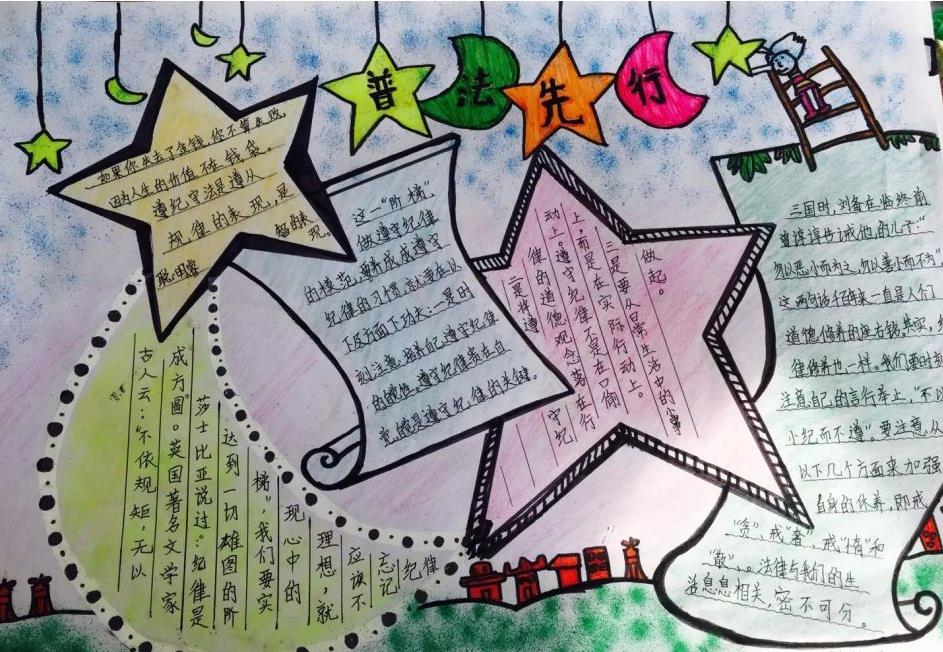 普法先行
如果你失去了金钱,你不算失败,
因为人生的价值不在钱袋。
遵纪守法是遵从
规律的表现,是
聪明睿
智的表
现。
古人云:“不依规矩,无以
成方圆”。英国著名文学家
莎士比亚说过:“纪律是
达到一切雄图的阶
梯”,我们要实
现心中的
理想,就
应该不
忘记
纪律
这一“阶梯”,
做遵守纪律
的模范,要养成遵守
纪律的习惯,就要在以
下几方面下功夫:一是时
刻注意培养自己遵守纪律
的自觉性,遵守纪律贵在自
觉,自觉是遵守纪律的关键。
二是将遵守纪
律的道德观念落在行
动上。遵守纪律不是在口何
上,而是在实际行动上。
三是要从日常生活中的小事
做起。
三国时,刘备在临终前
谆谆告诫他的儿子:“
勿以恶小而为之,勿以善小而不为”
这两句话千百年来一直是人们
道德修养的座右铭,其实,
律修养也一样。我们要时刻
注意自己的言行举止,“不以
小纪而不遵”。要注意从
以下几个方面来加强
自身的休养,即戒
“贪”、戒“奢”、戒“惰”和
“散”、。法律与我们的生
活息息相关,密不可分。